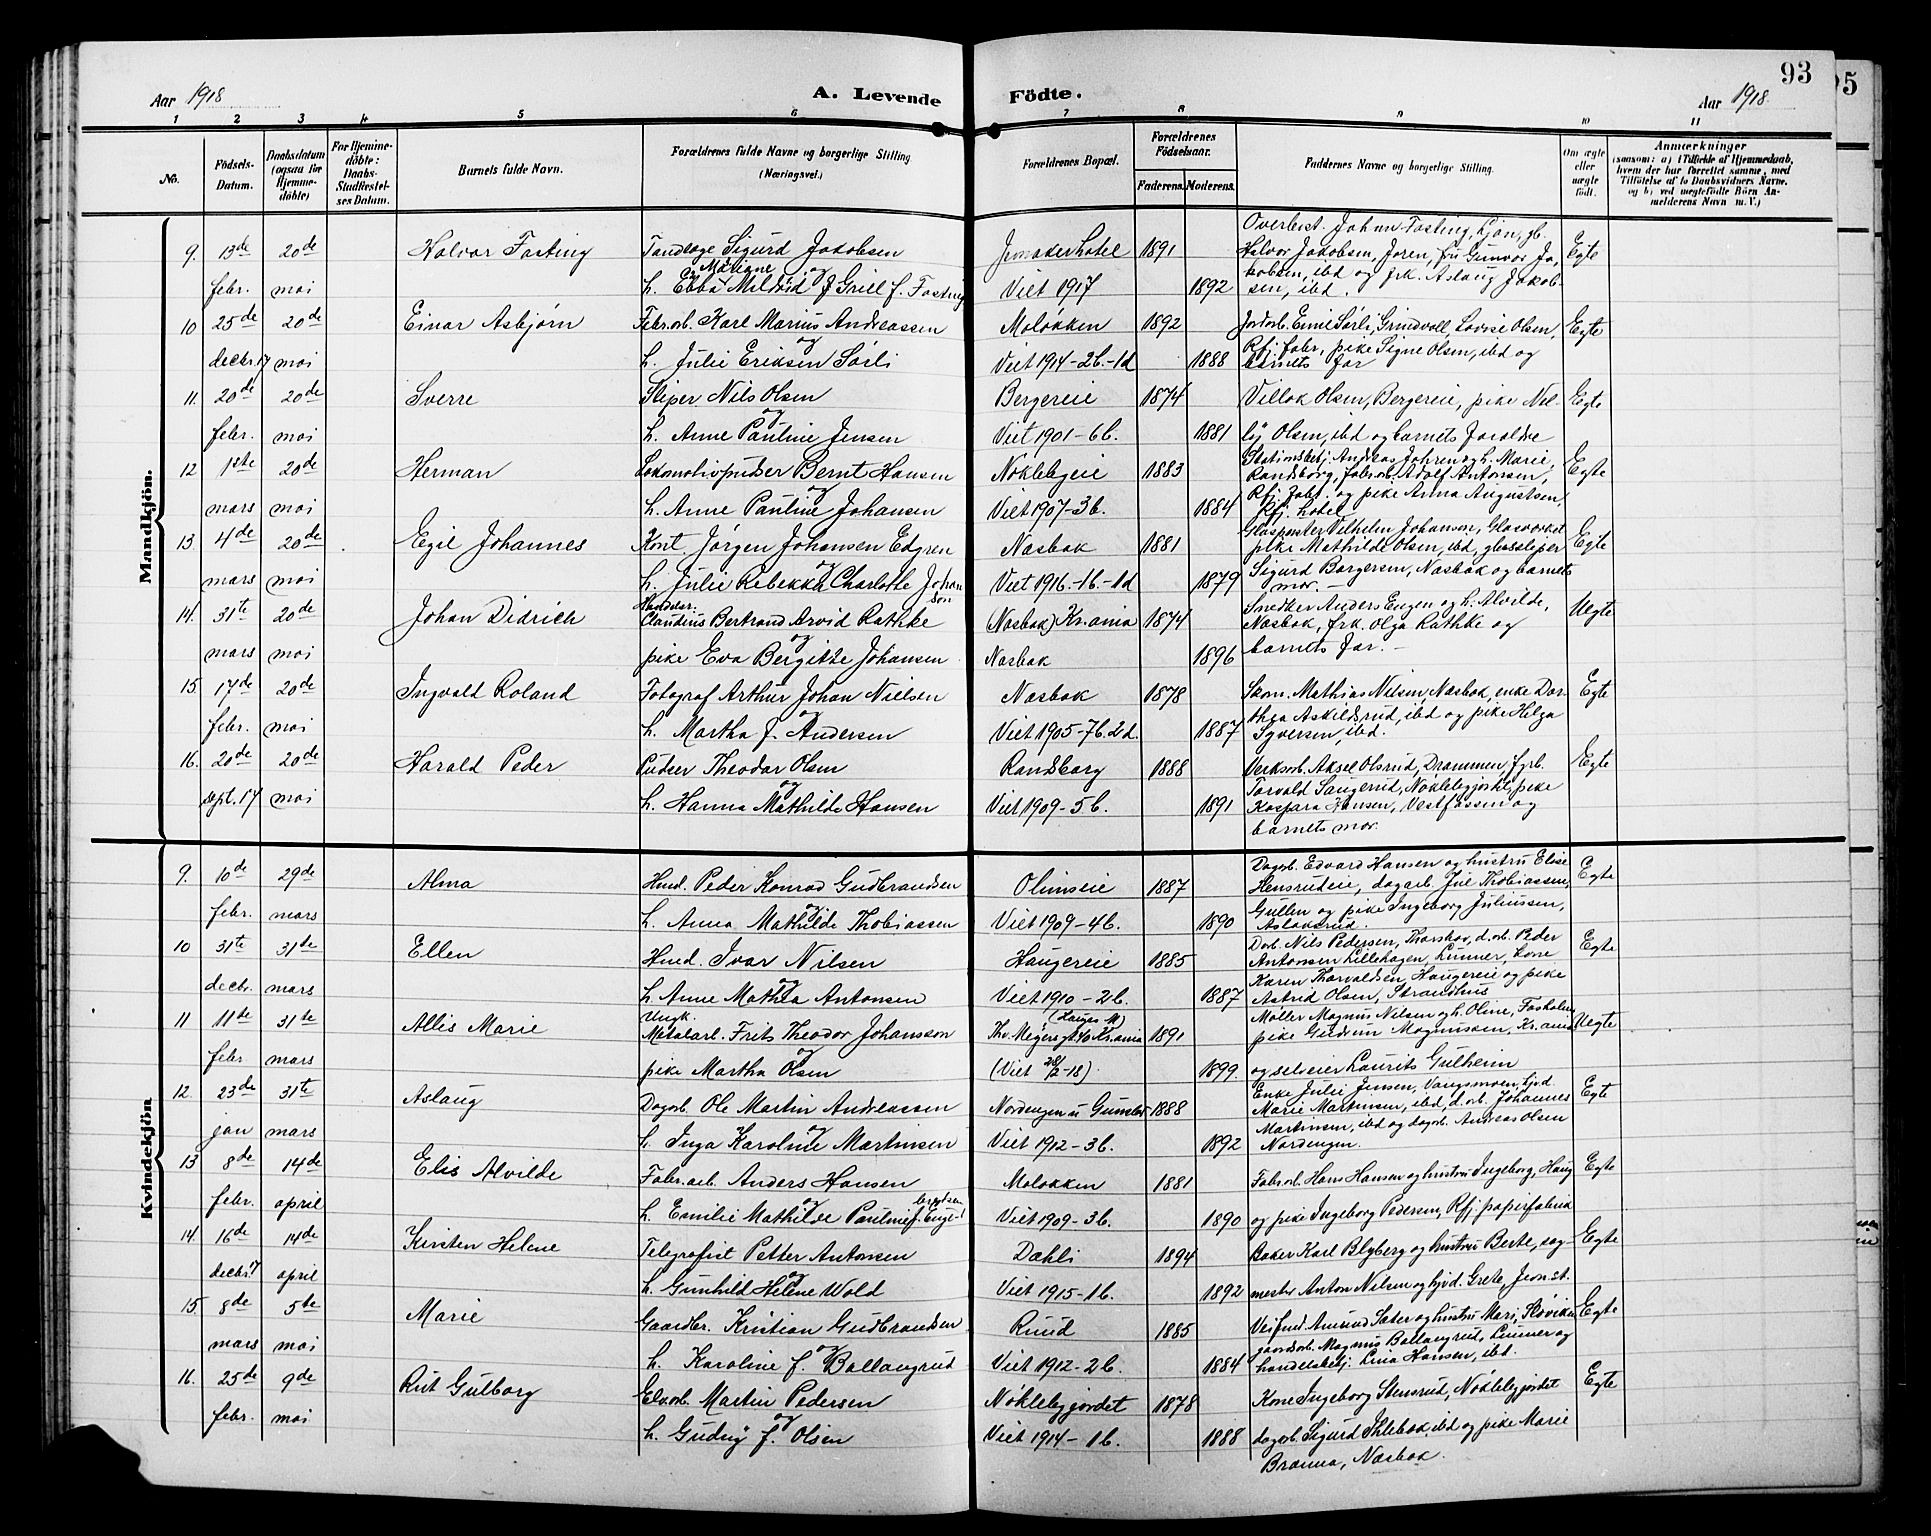 93
95
Aar 1918
A. Levende
Födte.
Aar 1918.
1 2 3 4 5 6 7 8 9 10 11
No.
Födsels-Datum.
Daabsdatum (ogsaa for Hjemmedöbte)
For Hjemmedöbte: Daabs-Stadfestelses Datum.
Barnets fulde Navn.
Forældrenes fulde Navne og borgerlige Stilling (Næringsvei.)
Forældrenes Bopæl.
Forældrenes Födselsaar.
Faderens. Moderens.
Faddernes Navne og borgerlige Stilling.
Om ægte eller uægte födt.
Anmærkninger
(saasom: a) i Tilfælde af Hjemmedaab, hvem der har forrettet samme, med Tilföielse af to Daabsvidners Navne, og b) ved uegtefödte Börn Anmelderens Navn m. V.)
Mandkjön.
9. 13de 20de Halvor Fasting Tandlæge Sigurd Jakobsen 1891 Egte
febr. mai Viet 1917 1892
Halvor Jakobsen, Jaren, fru Gunvor Jakobsen, ibd og frk. Aslaug Jakobsen, ibd.
10 25de 20de Einar Asbjørn Fabr.arb. Karl Marius Andreassen Moløkken 1892 Egte
decbr. 17 mai og h. Julie Eriksen Sørli Viet 1914-2b.-1d 1888
Jordarb. Emil Sørli, Grindvoll, Lovise Olsen, Rfj. fabr., pike Signe Olsen, ibd og barnets far
11. 20de 20de Sverre Sliper Nils Olsen Bergereie 1874 Egte
febr. mai og h. Anne Pauline Jensen Viet 1901-6b. 1881
Olsen, Bergereie, pike Nelly Olsen, ibd og barnets foreldre
12 1ste 20de Herman Lokomotivpudser Bernt Hansen Nøklebyeie 1883 Egte
mars mai og h. Anne Pauline Johansen Viet 1907-3b. 1884
Randsborg, fabr.arb. Adolf Antonsen, Rfj. fabr. og pike Anna Augustsen, Rfj. hotel
13. 4de 20de Egil Johannes Kont. Jørgen Johansen Edgren Næsbak 1881 Egte
mars mai og h. Julie Rebekka Charlotte Johanson Viet 1916-1b-1d 1879
Vilhelm Johanson, Glasværket pike Mathilde Olsen, ibd, glassliper Sigurd Borgersen, Næsbak og barnets mor.-
14. 31te 20de Johan Didrich Handelsr. Claudius Bertrand Arvid Rathke (Næsbak) Kr.ania 1874 Uegte
mars mai og pike Eva Bergitte Johansen Næsbak 1896
Snedker Anders Engen og h. Alvilde, Næsbak, frk. Olga Rathke og barnets far.-
15 17de 20de Ingvald Roland Fotograf Arthur Johan Nielsen Næsbak 1878 Egte
febr. mai og h. Martha f. Andersen Viet 1905-7b.2d. 1887
Skom. Mathias Nilsen, Næsbak, enke Dorthea Askildsrud, ibd og pike Helga Syversen, ibd.
16. 20de 20de Harald Peder Pudser Theodor Olsen Randsborg 1888 Egte
sept. 17 mai og h. Hanna Mathilde Hansen Viet 1909-5b. 1891
Verksarb. Aksel Olsrud, Drammen, fyrb. Torvald Saugerud, Nøklebygjordet, pike Kaspara Hansen, Vestfossen og barnets mor.
Kvindekjön
9. 10de 29de Alma Hmd. Peder Konrad Gudbrandsen Olimseie 1887 Egte
febr. mars og h. Anna Mathilde Thobiassen Viet 1909-4b. 1890
Dagarb. Edvard Hansen og hustru Elise Hensrudeie, dagarb. Juel Thobiassen, Gullen og pike Ingeborg Juliussen, Aslaksrud.
10 31te 31te Ellen Hmd. Ivar Nilsen Haugereie 1885 Egte
decbr. mars og h. Anne Mathea Antonsen Viet 1910-2b. 1887
Darb. Nils Pedersen, Thorshov, d.arb. Peder Antonsen Lillehagen, Lunner, kone Karen Thorvaldsen, Haugereie og pike Astrid Olsen, Strandhus
11 11te 31te Allis Marie Ungk. Metalarb. Frits Theodor Johansson Thv. Meyersgt. Kr.ania 1891 Uegte
febr. mars og pike Martha Olsen (Viet 28/2-18) 1899.
Møller Magnus Nilsen og h. Oline, Foskolen, pike Gudrun Magnussen, Kr.ania og selveier Laurits Gulheim
12. 23de 31te Aslaug Dagarb. Ole Martin Andreassen Nordengen u Gunstad 1888 Egte
jan mars og h. Inga Karoline Martinsen Viet 1912-3b. 1892
Enke Julie Jensen, Vangsmoen, hjvd. Marie Martinsen, ibd, d.arb. Johannes Martinsen, ibd og dagarb. Andreas Olsen Nordengen.
13 8de 14de Elis Alvilde Fabr.arb. Anders Hansen Moløkken 1881 Egte
febr. april og h. Emilie Mathilde Pauline f. Engebretsen Viet 1909-3b. 1890
Fabr.arb. Hans Hansen og hustru Ingeborg, Haug og pike Ingeborg Pedersen, Rfj. papirfabrik
14. 16de 14de Kirsten Helene Telegrafist Petter Antonsen Dæhli 1894 Egte
decbr. 17 april og h. Gunhild Helene Wold Viet 1915-1b. 1892
Baker Karl Blyberg og hustru Berte, sagmester Anton Nilsen og hjvd. Grete, Jevn. st.
15 8de 5te Marie Gaardbr. Kristian Gudbrandsen Ruud 1885 Egte
mars mai og h. Karoline f. Ballangrud Viet 1912-2b. 1884
Veifud. Amund Sæter og hustru Mari, Skøviken, gaardarb. Magnus Ballangrud, Lunner og handelsbetj. Lina Hansen, ibd.
16. 25de 9de Rut Gulborg Elvarb. Martin Pedersen Nøklebygjordet 1878 Egte
febr. mai og h. Gudny f. Olsen Viet 1914-1b. 1888
Kone Ingeborg Stensrud, Nøklebygjordet dagarb. Sigurd ibd og pike Marie Brænna, Næsbak.